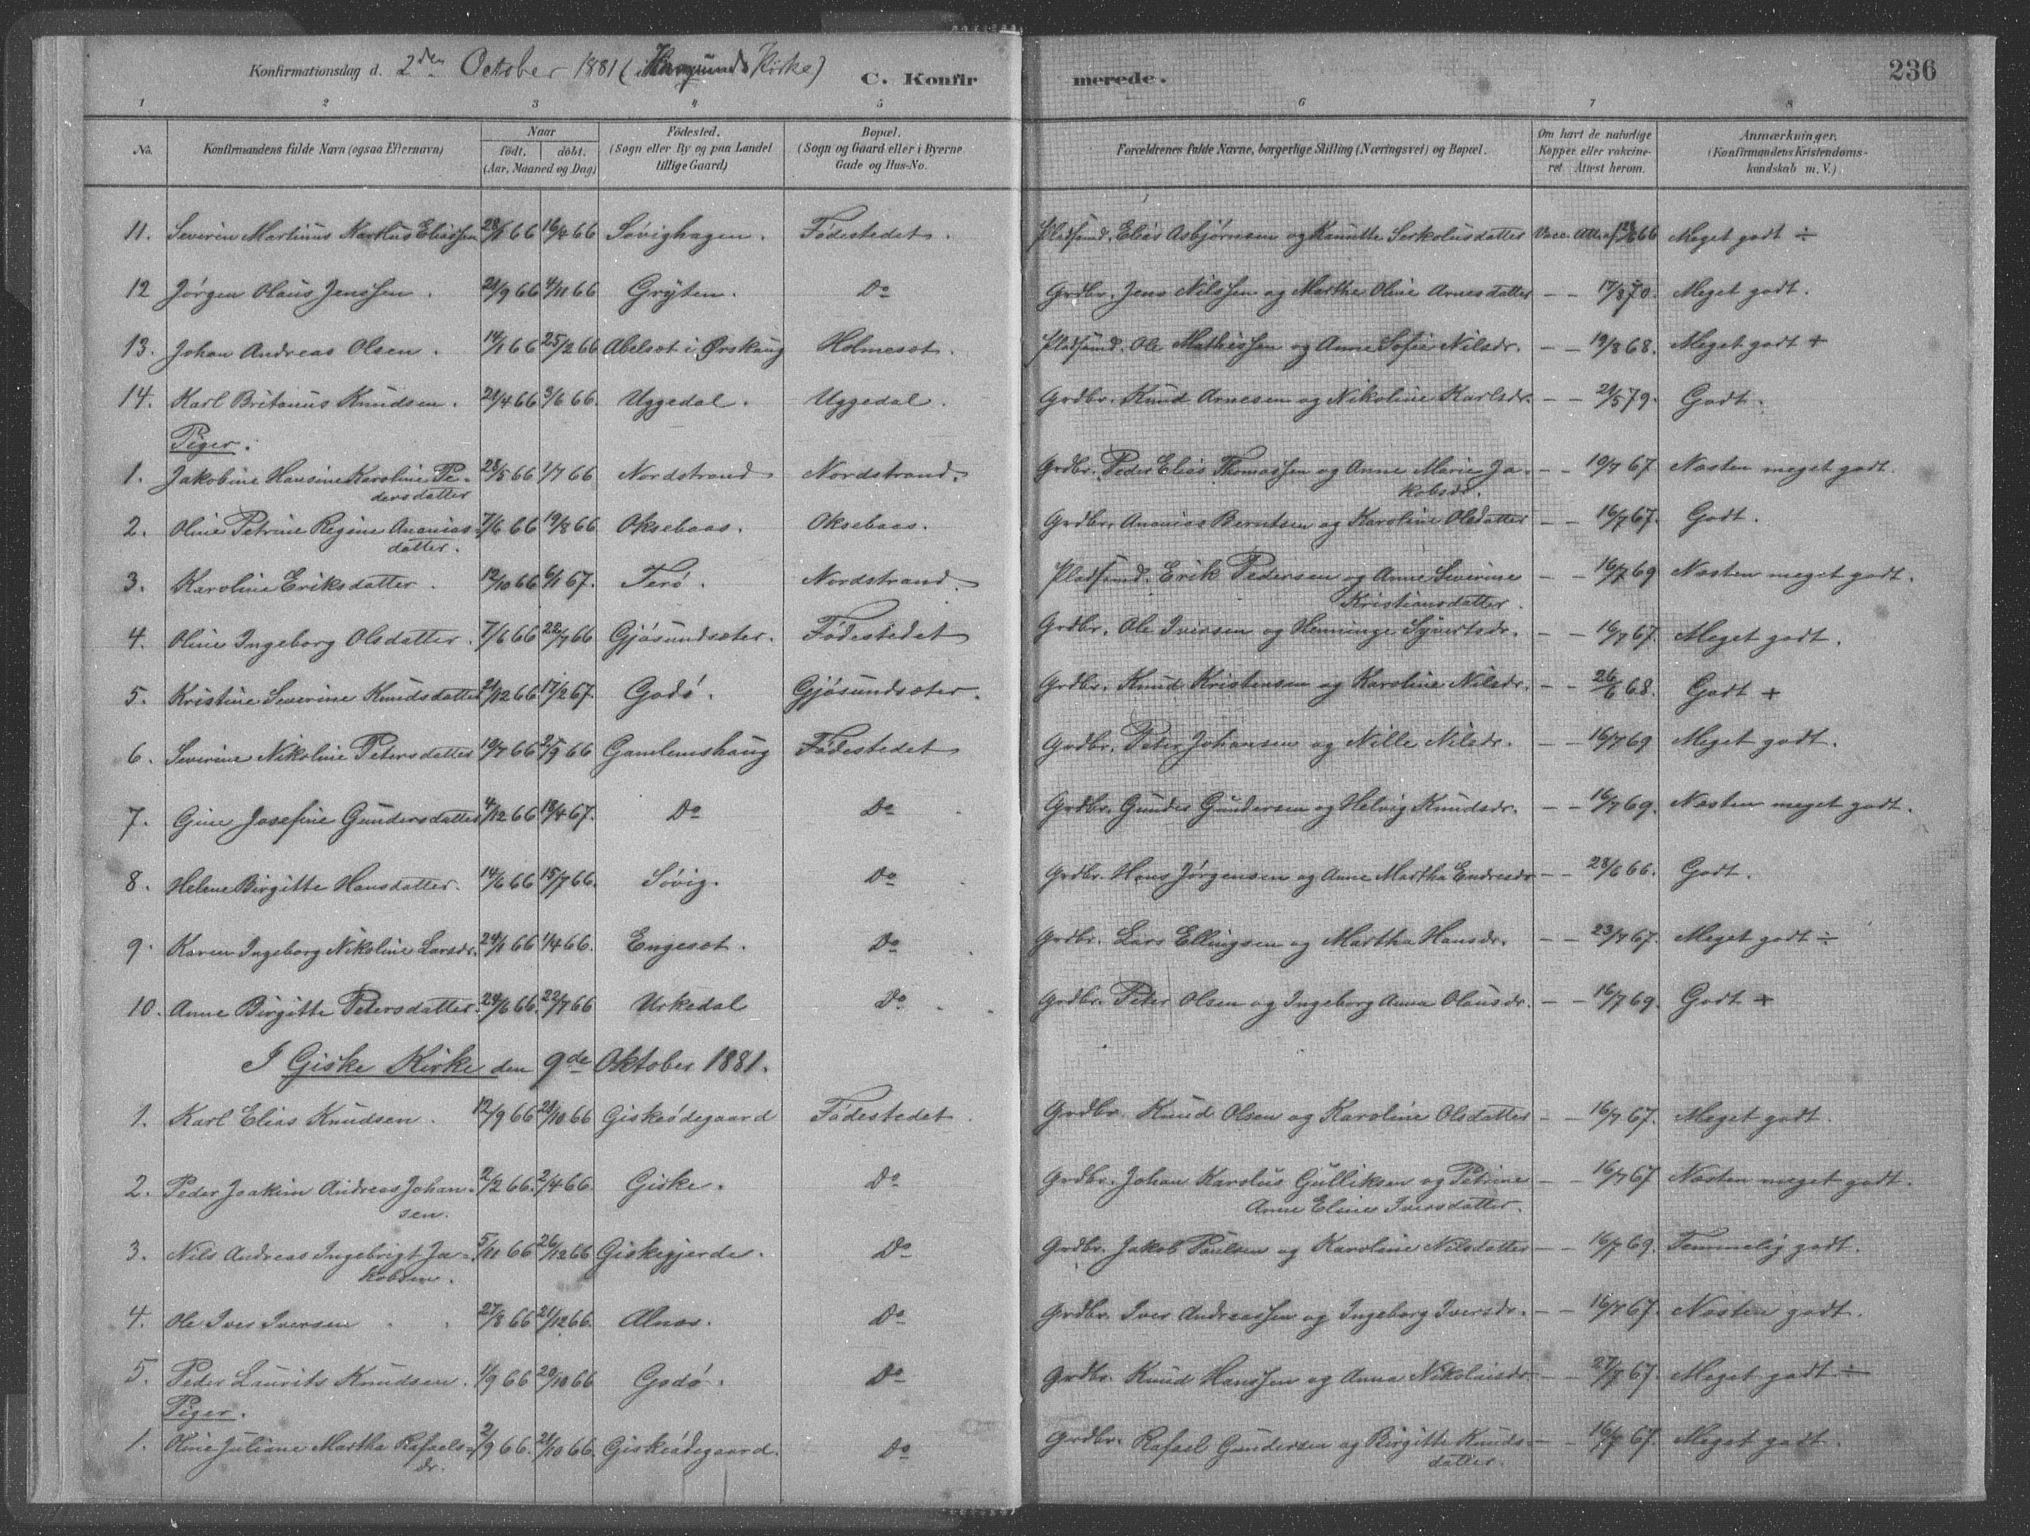 Konfirmationsdag d. 2den October 1881 (i Borgunds Kirke) C. Konfirmerede. 236
1 2 3 4 5 6 7 8
No. Konfirmandens fulde Navn (ogsaa Efternavn) Naar født. døbt. (Aar, Maaned og Dag) Fødested. (Sogn eller By og paa Landet tillige Gaard) Bopæl. (Sogn og Gaard eller i Byerne Gade og Hus-No. Forældrenes fulde Navne, borgerlige Stilling (Næringsvei) og Bopæl. Om havt de naturlige Kopper eller vakcineret Attest herom. Anmærkninger. (Konfirmandens Kristendomskundskab m. V.)
11. Severin Martinus Karelius Eliassen 28/1 66 16/4 66 Søvighagen. Fødestedet. Pladsmd. Elias Asbjørnsen og Kanutte Serkolusdatter Vacc. Att. 66 Meget godt ÷
12 Jørgen Olaus Jenssen. 21/9 66 4/11 66 Gryten. Do Grdbr. Jens Nilssen og Marthe Oline Arnesdatter — — 17/8 70. Meget godt.
13. Johan Andreas Olsen. 14/1 66 25/2 66 Abelset i Ørskoug Holmeset. Pladsmd. Ole Mathissen og Anne Sofie Nilsdr. — — 19/8 68. Meget godt +
14. Karl Britanus Knudsen. 21/4 66 3/6 66. Uggedal. Uggedal. Grdbr. Knud Arnesen og Nikoline Karlsdr. — — 21/5 79. Godt.
Piger.
1. Jakobine Hansine Karoline Pedersdatter 28/5 66 1/7 66 Nordstrand Nordstrand. Grdbr. Peder Elias Thomassen og Anne Marie Jakobsdr. — — 19/7 67. Næsten meget godt.
2. Oline Petrine Regine Ananiasdatter. 7/6 66 19/8 66 Oksebaas. Oksebaas. Grdbr. Ananias Berntsen og Karoline Olsdatter — — 16/7 67. Godt.
3. Karoline Eriksdatter. 12/10 66 6/1 67. Terø. Nordstrand. Pladsmd. Erik Pedersen og Anne Severine Kristiansdatter. — — 16/7 69 Næsten meget godt.
4. Oline Ingeborg Olsdatter. 7/6 66 22/7 66 Gjøsundsæter. Fødestedet Grdbr. Ole Iversen og Henninge Syvertsdr. — — 16/7 67. Meget godt.
5. Kristine Severine Knudsdatter 21/12 66 17/2 67. Godø. Gjøsundsæter. Grdbr. Knud Kristensen og Karoline Nilsdr. — — 26/6 68. Godt +
6. Severine Nikoline Petersdatter 19/7 66 2/9 66 Gamlemshaug Fødestedet Grdbr. Peter Johansen og Nille Nilsdr. — — 16/7 69 Meget godt.
7. Gine Josefine Gundersdatter 4/12 66 18/4 67. Do Do Grdbr. Gunder Gundersen og Helvig Knudsdr. — — 16/7 69. Næsten meget godt.
8. Helene Birgitte Hansdatter. 14/6 66 15/7 66. Søvig. Do Grdbr. Hans Jørgensen og Anne Martha Endresdr — — 28/6 66. Godt.
9. Karen Ingeborg Nikoline Larsdr. 24/1 66 1/4 66. Engeset. Do Grdbr. Lars Ellingsen og Martha Hansdr. — — 23/7 67. Meget godt ÷
10. Anne Birgitte Petersdatter. 24/6 66. 22/7 66 Urkedal Do Grdbr. Peter Olsen og Ingeborg Anna Olausdr. — — 16/7 69. Godt +
I Giske Kirke den 9de Oktober 1881.
1. Karl Elias Knudsen. 12/9 66 28/10 66 Giskeødegaard Fødestedet. Grdbr. Knud Olsen og Karoline Olsdatter — — 16/7 67. Meget godt.
2. Peder Joakim Andreas Johansen. 2/2 66. 2/4 66. Giske. Do Grdbr. Johan Karolus Gulliksen og Petrine Anne Eline Iversdatter. — — 16/7 67 Næsten meget godt.
3. Nils Andreas Ingebrigt Jakobsen. 5/11 66 26/12 66 Giskegjerde. Do Grdbr. Jakob Paulsen og Karoline Nilsdatter — — 16/7 69. Temmelig godt.
4. Ole Iver Iversen 27/8 66 21/12 66. Alnæs. Do Grdbr. Iver Andreassen og Ingeborg Iversdr. — — 16/7 67. Næsten godt.
5. Peder Laurits Knudsen. 1/9 66 20/10 66 Godø. Do Grdbr. Knud Hanssen og Anna Nikolaisdr. — — 27/7 67. Meget godt ÷
Piger.
1. Oline Juliane Martha Rafaelsdr. 2/9 66. 28/10 66 Giskeødegaard. Do Grdbr. Rafael Gundersen og Birgitte Knudsdatter. — — 16/7 67. Meget godt.